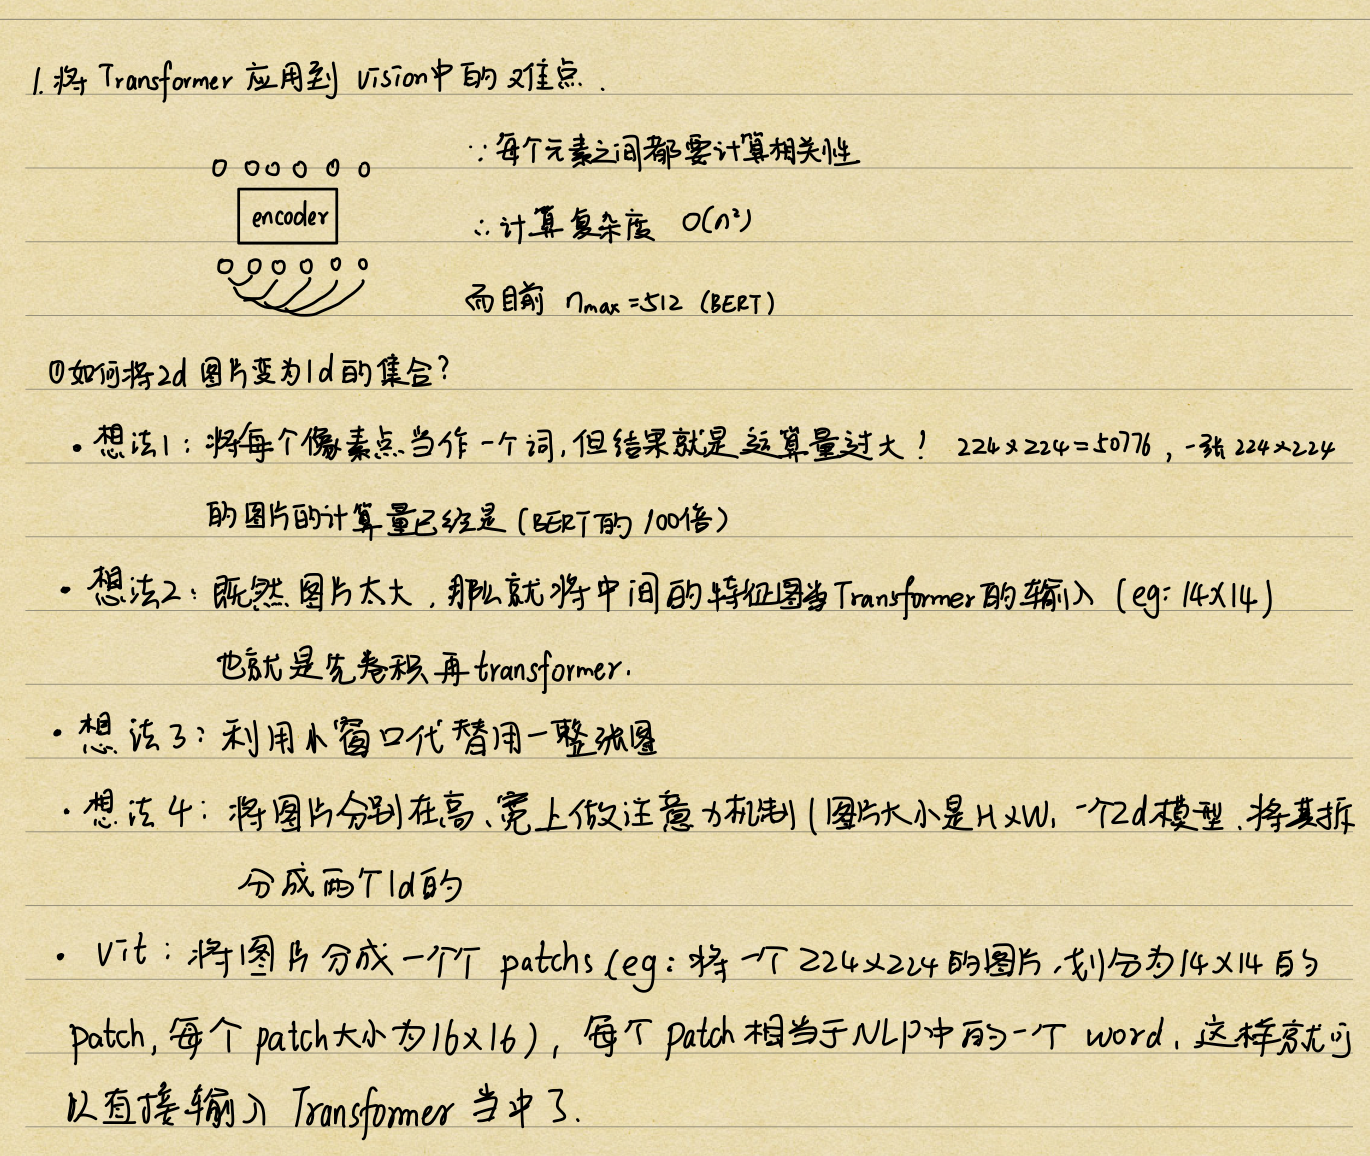 1. 将 Transformer 应用到 vision中的难点.
∵每个元素之间都要计算相关性
encoder
∴计算复杂度 O(n²)
而目前 nmax=512 (BERT)
①如何将2d 图片变为1d的集合?
· 想法1: 将每个像素点当作一个词, 但结果就是运算量过大! 224×224=50776, 一张 224×224
的图片的计算量已经是 (BERT的 100倍)
· 想法2: 既然图片太大, 那么就将中间的特征图当Transformer的输入 (eg: 14×14)
也就是先卷积再transformer.
· 想法3: 利用小窗口代替用一整张图
· 想法4: 将图片分别在高、宽上做注意力机制 (图片大小是H×W, 一个2d模型, 将其拆
分成两个1d的
· vit: 将图片分成一个个 patchs (eg: 将一个 224×224 的图片, 划分为14×14 的
patch, 每个 patch大小为16×16), 每个 patch 相当于NLP中的一个 word, 这样就可
以直接输入 Transformer 当中了.